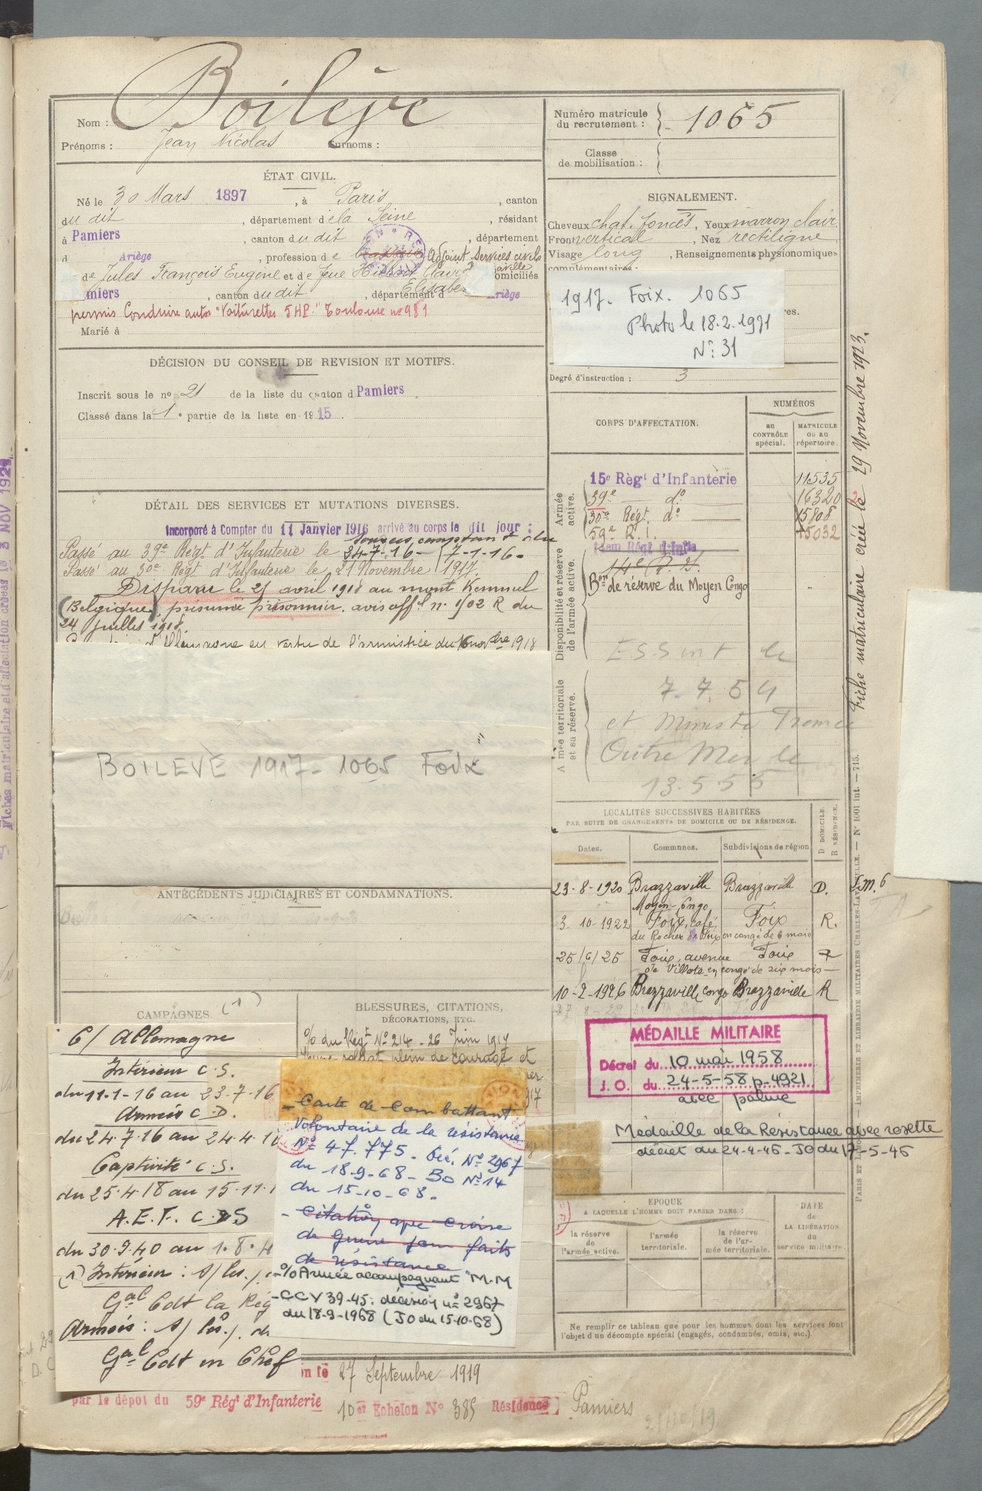 Nom : Boilève
Prénoms : Jean Nicolas Surnoms :
Numéro matricule
du recrutement : 1065
Classe
de mobilisation :
ÉTAT CIVIL.
Né le 30 Mars 1897, à Paris, canton
du dit, département de la Seine, résidant
à Pamiers, canton du dit, département
d Ariège, profession de Adjoint Services civils
de Jules François Eugène et de feue
miers, canton du dit, département d Ariège
permis Conduire autos "Voiturettes 5HP" Toulouse no 981
Marié à
SIGNALEMENT.
Cheveux chat. foncés, Yeux marron clair
Front vertical, Nez rectiligne
Visage long, Renseignements physionomiques
complémentaires :
1917. Foix. 1065
Photo le 18.2.1971
N° 31
Degré d'instruction : 3
DÉCISION DU CONSEIL DE REVISION ET MOTIFS.
Inscrit sous le no 21 de la liste du canton d Pamiers
Classé dans la 1e partie de la liste en 1915
CORPS D'AFFECTATION.
NUMÉROS
AU CONTRÔLE spécial.
MATRICULE OU AU répertoire.
Armée active.
15e Régt d'Infanterie 11535
39e do 16320
30e Régt. do 15808
59e R.I. 15032
Disponibilité et réserve de l'armée active.
14e R.I.
Bon de réserve du Moyen Congo
E.S.S int le
7.7.54
Armée territoriale et sa réserve.
et Ministre France
Outre Mer le
13.5.55
DÉTAIL DES SERVICES ET MUTATIONS DIVERSES.
Incorporé à Compter du 11 Janvier 1916 arrivé au corps le dit jour ;
Passé au 39e Régt d'Infanterie le 24-7-16
Passé au 30e Régt d'Infanterie le 21 Novembre 1917.
Disparu le 25 avril 1918 au mont Kemmel
(Belgique) présumé prisonnier. avis offel no 1502 R du
24 juillet 1918.
en vertu de l'armistice du
BOILEVE 1917- 1065 Foix
ANTÉCÉDENTS JUDICIAIRES ET CONDAMNATIONS.
LOCALITÉS SUCCESSIVES HABITÉES
PAR SUITE DE CHANGEMENTS DE DOMICILE OU DE RÉSIDENCE.
Dates. Communes. Subdivisions de région D DOMICILE. R RÉSIDENCE.
23-8-1920 Brazzaville Moyen Congo Brazzaville D.
3-10-1922 Foix, café du Rocher de Foix Foix en congé de 6 mois R.
25/6/25 Foix, avenue de Villote Foix en congé de six mois
10-2-1926 Brazzaville Congo Brazzaville R
Fiche matriculaire créée le 29 Novembre 1923.
CAMPAGNES (1)
C/ Allemagne
Intérieur C.S.
du 11-1-16 au 23-7-16
Armées C.D.
du 24.7.16 au 24.4.1
Captivité C.S.
du 25.4.18 au 15.11.1
A.E.F. C.D.S
du 30.9.40 au 1.8.4
(1) Intérieur :
Gal Cdt la Rég
Armées :
Gal Cdt en Chef
BLESSURES, CITATIONS,
DÉCORATIONS, ETC.
O/ du Régt No 214. 26 Juin 1917
plein de courage et
- Carte de Combattant
Volontaire de la résistance
N° 47.775. Déc. N° 2967
du 18-9-68 - BO N° 14
du 15-10-68.
- Citation avec Croix
de guerre pour faits
de résistance
O/ Armée accompagnant M.M
- CCV 39-45: décision n° 2967
du 18-9-1968 (JO du 15-10-68)
MÉDAILLE MILITAIRE
Décret du 10 mai 1958
J.O. du 24-5-58 p. 4921
avec palme
Médaille de la Résistance avec rosette
décret du 24-4-46 - JO du 17-5-46
EPOQUE
A LAQUELLE L'HOMME DOIT PASSER DANS :
la réserve de l'armée active.
l'armée territoriale.
la réserve de l'armée territoriale.
DATE de LA LIBÉRATION du service militaire.
Ne remplir ce tableau que pour les hommes dont les services font
l'objet d'un décompte spécial (engagés, condamnés, omis, etc.).
27 Septembre 1919
par le dépôt du 59e Régt d'Infanterie 10e Echelon No 385 Résidence Pamiers